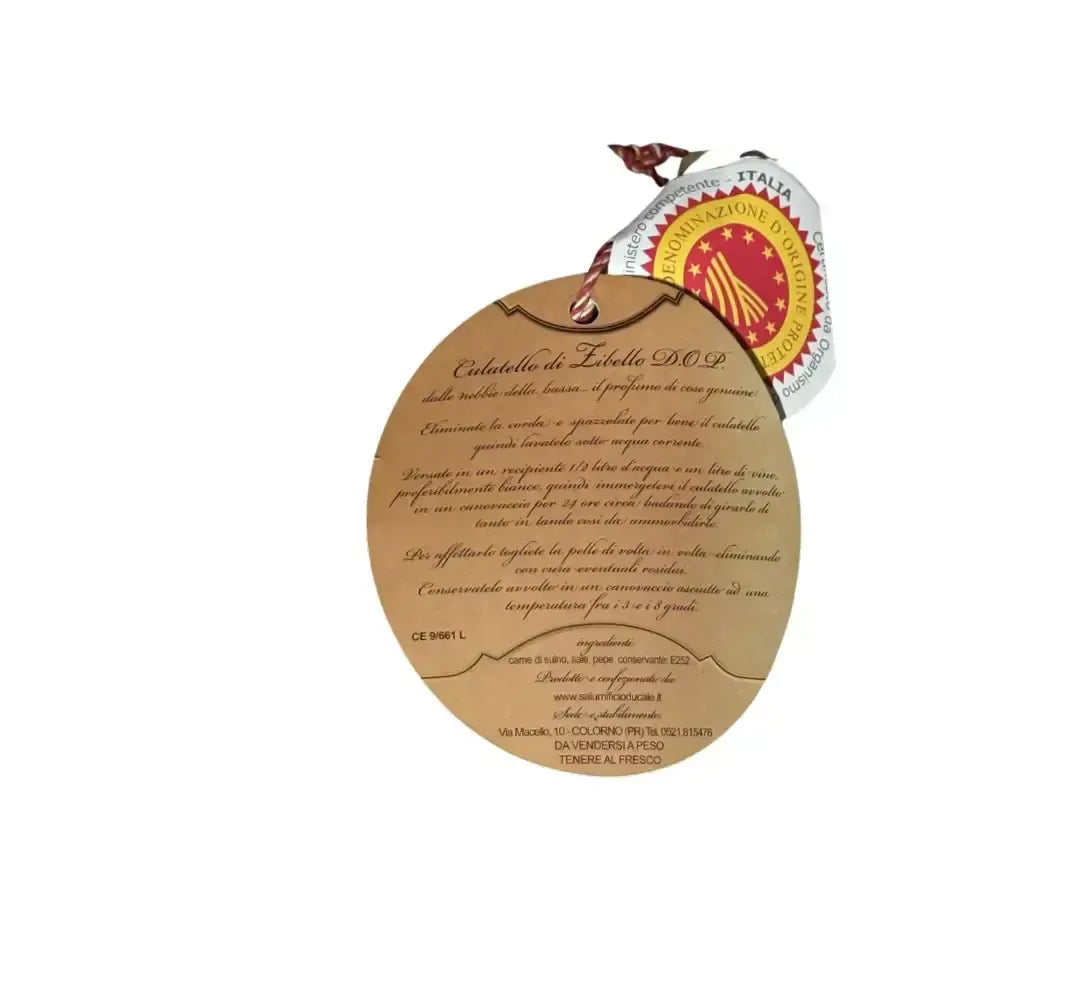 Ministero competente - ITALIA
DENOMINAZIONE D'ORIGINE PROTETTA
Organismo
Culatello di Zibello D.O.P.
dalle nebbie della bassa... il profumo di cose genuine
Eliminate la corda e spazzolate per bene il culatello
quindi lavatelo sotto acqua corrente.
Versate in un recipiente 1/2 litro d'acqua e un litro di vino,
preferibilmente bianco, quindi immergetevi il culatello avvolto
in un canovaccio per 24 ore circa badando di girarlo di
tanto in tando così da ammorbidirlo.
Per affettarlo togliete la pelle di volta in volta eliminando
con cura eventuali residui.
Conservatelo avvolto in un canovaccio asciutto ad una
temperatura fra i 3 e i 8 gradi.
CE 9/661 L
ingredienti
carne di suino, sale, pepe, conservante: E252
Prodotto e confezionato da
www.salumificioducale.it
Sede e stabilimento:
Via Macello, 10 - COLORNO (PR) Tel. 0521.815476
DA VENDERSI A PESO
TENERE AL FRESCO